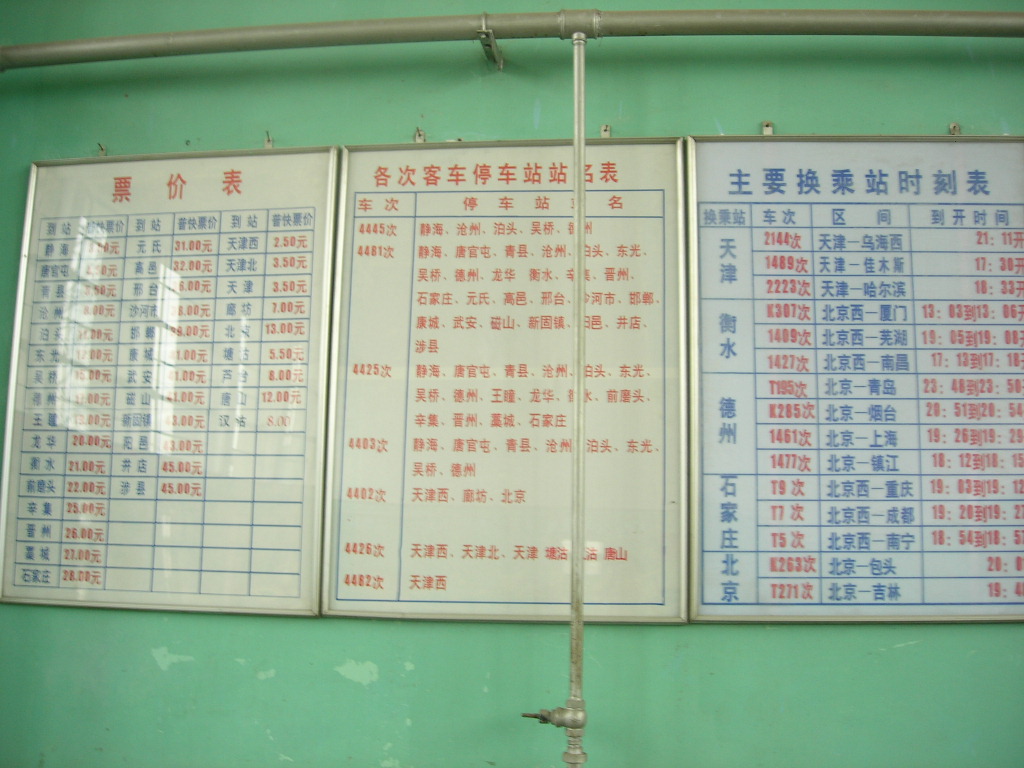 票价表
到站 普快票价 到站 普快票价 到站 普快票价
静海 元氏 31.00元 天津西 2.50元
唐官屯 高邑 32.00元 天津北 3.50元
青县 3.50元 邢台 天津 3.50元
沧州 沙河市 廊坊 7.00元
泊头 邯郸 北京 13.00元
东光 康城 塘沽 5.50元
吴桥 武安 芦台 8.00元
德州 磁山 唐山 12.00元
王瞳 新固镇 汉沽 8.00
龙华 20.00元 阳邑
衡水 21.00元 井店 45.00元
前磨头 22.00元 涉县 45.00元
辛集 25.00元
晋州 26.00元
藁城 27.00元
石家庄 28.00元
各次客车停车站站名表
车次 停车站站名
4445次 静海、沧州、泊头、吴桥、德州
4461次 静海、唐官屯、青县、沧州、泊头、东光、
吴桥、德州、龙华 衡水、辛集、晋州、
石家庄、元氏、高邑、邢台、沙河市、邯郸、
康城、武安、磁山、新固镇、阳邑、井店、
涉县
4425次 静海、唐官屯、青县、沧州、泊头、东光、
吴桥、德州、王瞳、龙华、衡水、前磨头、
辛集、晋州、藁城、石家庄
4403次 静海、唐官屯、青县、沧州、泊头、东光、
吴桥、德州
4402次 天津西、廊坊、北京
4426次 天津西、天津北、天津 塘沽 汉沽 唐山
4462次 天津西
主要换乘站时刻表
换乘站 车次 区间 到开时间
天津 2144次 天津—乌海西 21:11开
1489次 天津—佳木斯 17:30开
2223次 天津—哈尔滨 18:33开
衡水 K307次 北京西—厦门 13:03到13:06开
1409次 北京西—芜湖 19:05到19:08
1427次 北京西—南昌 17:13到17:18
德州 T195次 北京—青岛 23:48到23:50
K285次 北京—烟台 20:51到20:54
1461次 北京—上海 19:26到19:29
1477次 北京—镇江 18:12到18:15
石家庄 T9次 北京西—重庆 19:03到19:12
T7次 北京西—成都 19:20到19:27
T5次 北京西—南宁 18:54到18:57
北京 K263次 北京—包头
T271次 北京—吉林